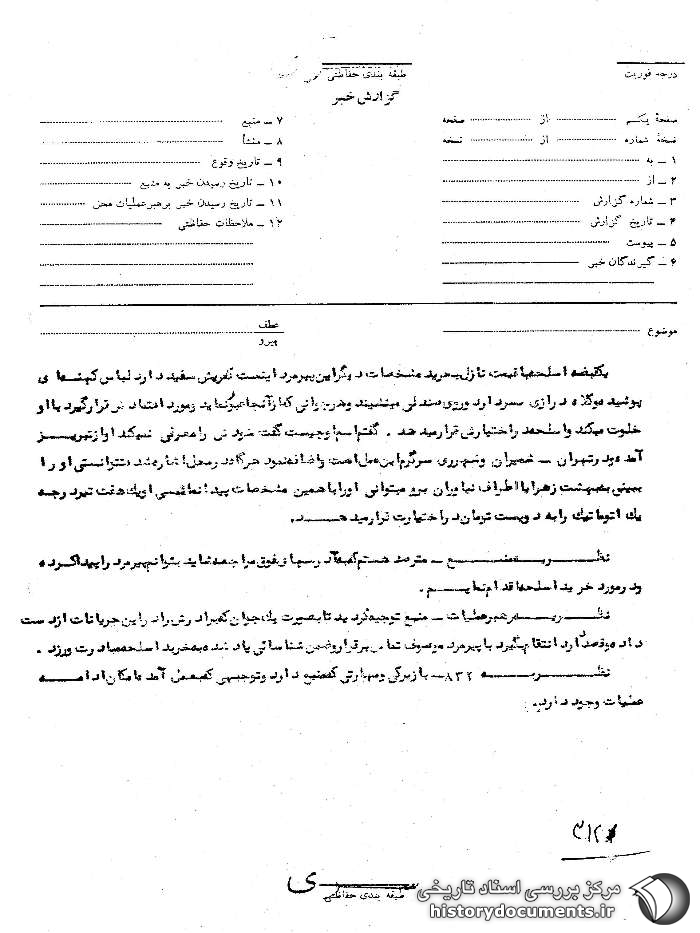 درجه فوریت
طبقه بندی حفاظتی
گزارش خبر
صفحهٔ یکم از صفحه
نسخهٔ شماره از نسخه
۱ ـ به
۲ ـ از
۳ ـ شماره گزارش
۴ ـ تاریخ گزارش
۵ ـ پیوست
۶ ـ گیرندگان خبر
۷ ـ منبع
۸ ـ منشأ
۹ ـ تاریخ وقوع
۱۰ ـ تاریخ رسیدن خبر به منبع
۱۱ ـ تاریخ رسیدن خبر برهبر عملیات محل
۱۲ ـ ملاحظات حفاظتی
موضوع
عطف
پیرو
یکقبضه اسلحه با قیمت نازل بخرید مشخصات دیگر این پیرمرد اینست که ریش سفید دارد لباس کهنه ای
پوشیده و کلاه درازی بسر دارد و روی صندلی مینشیند و هرجوانی که از آنجا عبور نماید و مورد اعتمادش قرار گیرد با او
خلوت میکند و اسلحه در اختیارش قرار میدهد . گفتم اسم او چیست گفت خودش را معرفی نمیکند او از تبریز
آمده و در تهران ـ شمیران و شهرری سرگرم این عمل است و اضافه نمود هرگاه در محل اشاره شده نتوانستی او را
ببینی به بهشت زهرا یا اطراف نیاوران برو میتوانی او را با همین مشخصات پیدا نمائی او یک هفت تیر درجه
یک اتوماتیک را به دویست تومان در اختیارت قرار میدهد.
نظریه منبع ـ مترصد هستم که به آدرسهای فوق مراجعه شاید بتوانم پیرمرد را پیدا کرده
و در مورد خرید اسلحه اقدام نمایم .
نظریه رهبر عملیات ـ منبع توجیه گردید تا بصورت یک جوان که برادرش را در این جریانات از دست
داده و قصد دارد انتقام بگیرد با پیرمرد موصوف تماس برقرار و ضمن شناسائی یاد شده به خرید اسلحه مبادرت ورزد .
نظریه ۸۳۲ ـ با زیرکی و مهارتی که منبع دارد و توجیهی که بعمل آمده امکان ادامه
عملیات وجود دارد.
۳۱۲
سری
طبقه بندی حفاظتی
مرکز بررسی اسناد تاریخی
historydocuments.ir